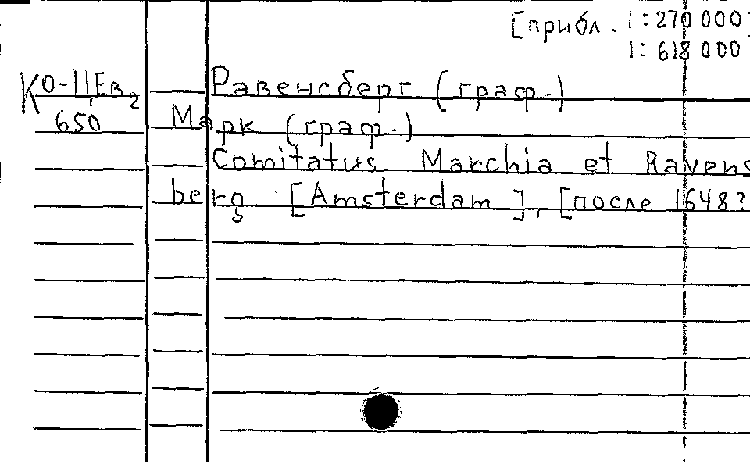 [прибл. 1:270 000]
1: 618 000
Ко-11Ев2
650
Равенсберг (граф.)
Марк (граф.)
Comitatus Marchia et Ravens
berg [Amsterdam], [после 1648?